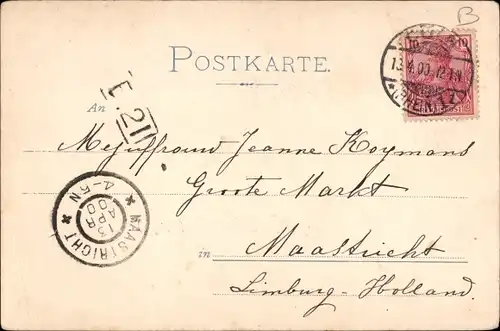 B
POSTKARTE.
10 10
13.4.00.12-1N
*(RHEIN)
An
E.211
Mejuffrouw Jeanne Koymans
Groote Markt
in Maastricht
Limburg-Holland
MAASTRICHT
13
APR
00
4-5N